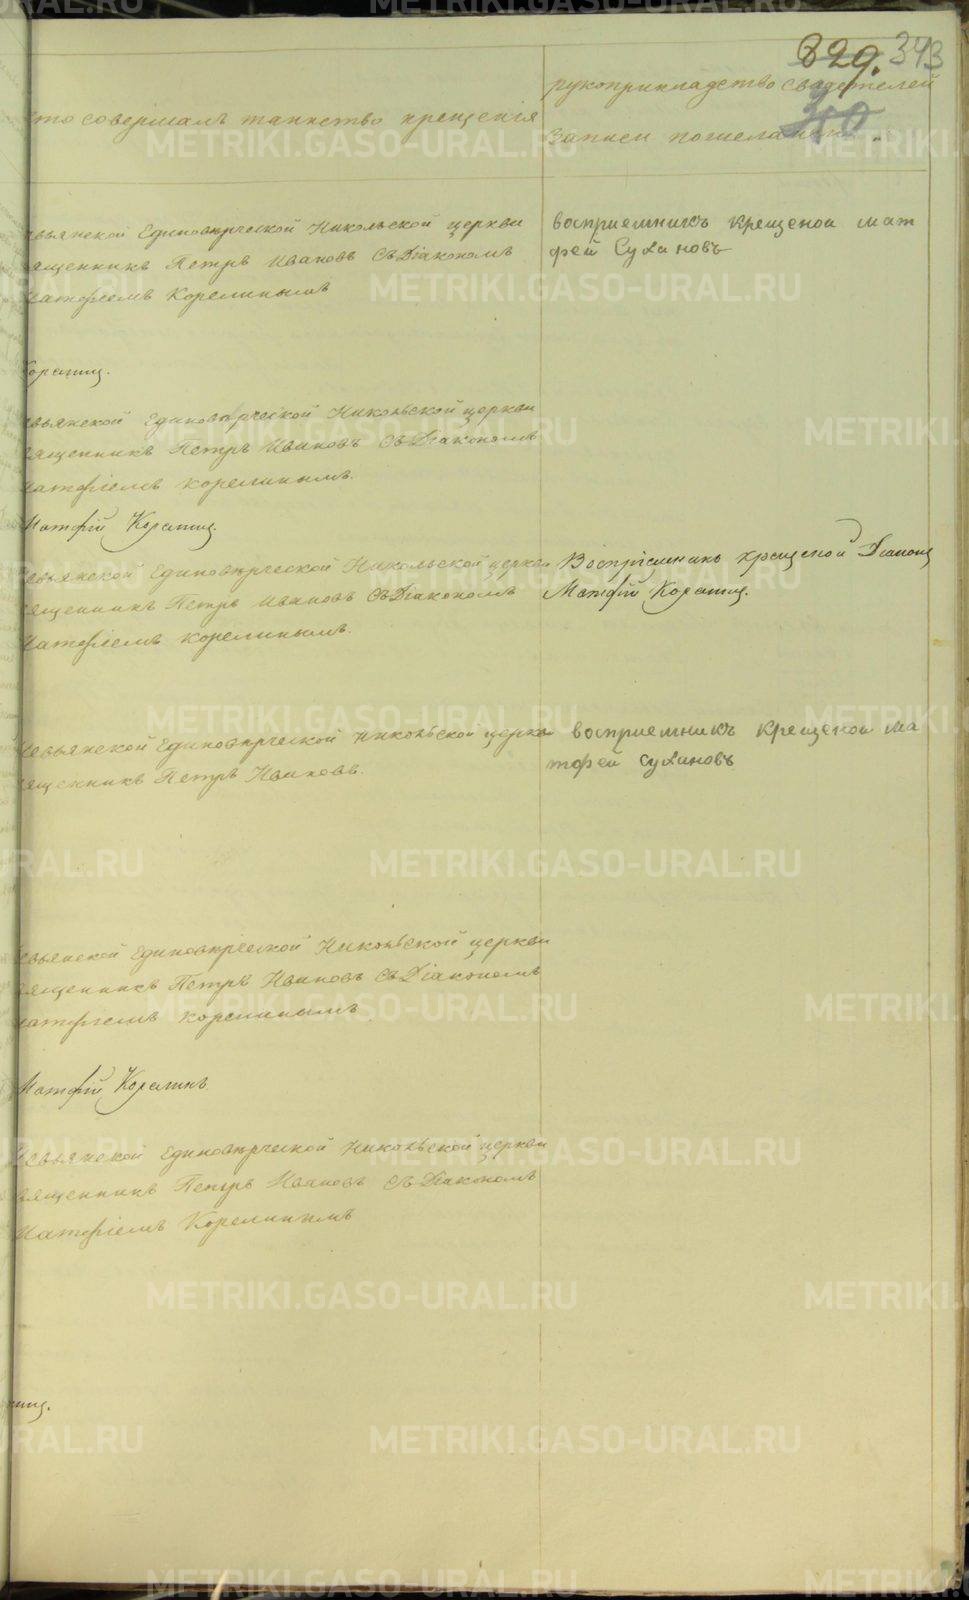 329. 343
40
рукоприкладство свидетелей
кто совершалъ таинство крещенія
записи по желанію
евьянской Единоверческой Никольской церкви
вященникъ Петръ Ивановъ съ Діакономъ
Матѳіемъ Корелинымъ
восприемникъ крещеной мат
фей Сухановъ
Корелинъ.
евьянской Единоверческой Никольской церкви
вященникъ Петръ Ивановъ съ Діакономъ
Матѳіемъ Корелинымъ.
Матфій Корелинъ.
Невьянской Единоверческой Никольской церкви
вященникъ Петръ Ивановъ съ Діакономъ
Матѳіемъ Корелинымъ.
Воспріемникъ крещеной Діаконъ
Матфій Корелинъ.
Невьянской Единоверческой Никольской церкви
вященникъ Петръ Ивановъ.
восприемникъ крещеной ма
тфей Сухановъ
евьянской Единоверческой Никольской церкви
вященникъ Петръ Ивановъ съ Діакономъ
Матѳіемъ Корелинымъ
Матфій Корелинъ
Невьянской Единоверческой Никольской церкви
вященникъ Петръ Ивановъ съ Діакономъ
Матѳіемъ Корелинымъ
METRIKI.GASO-URAL.RU